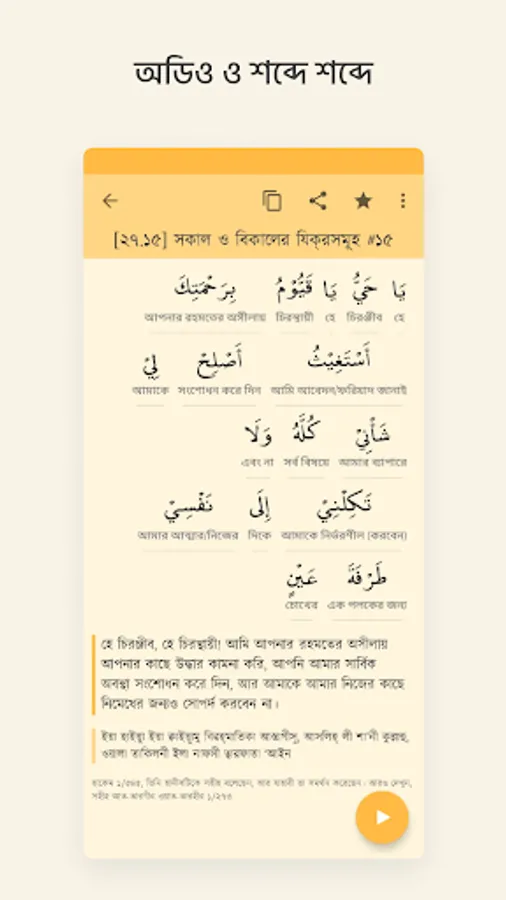 অডিও ও শব্দে শব্দে
[২৭.১৫] সকাল ও বিকালের যিক্‌রসমূহ #১৫
يَا حَيُّ يَا قَيُّوْمُ بِرَحْمَتِكَ
হে চিরঞ্জীব হে চিরস্থায়ী আপনার রহমতের অসীলায়
أَسْتَغِيْثُ أَصْلِحْ لِيْ
আমি আবেদন/ফরিয়াদ জানাই সংশোধন করে দিন আমাকে
شَأْنِيْ كُلَّهُ وَلَا
আমার ব্যাপারে সর্ব বিষয়ে এবং না
تَكِلْنِيْ إِلَى نَفْسِيْ
আমাকে নির্ভরশীল (করবেন) দিকে আমার আত্মার/নিজের
طَرْفَةَ عَيْنٍ
এক পলকের জন্য চোখের
হে চিরঞ্জীব, হে চিরস্থায়ী! আমি আপনার রহমতের অসীলায়
আপনার কাছে উদ্ধার কামনা করি, আপনি আমার সার্বিক
অবস্থা সংশোধন করে দিন, আর আমাকে আমার নিজের কাছে
নিমেষের জন্যও সোপর্দ করবেন না।
ইয়া হাইয়্যু ইয়া ক্বাইয়্যূমু বিরহ্‌মাতিকা আস্তাগীসু, আসলিহ্‌ লী শা'নী কুল্লাহু,
ওয়ালা তাকিলনী ইলা নাফসী ত্বারফাতা 'আইন
হাকেম ১/৫৪৫, তিনি হাদীসটিকে সহীহ বলেছেন, আর যাহাবী তা সমর্থন করেছেন। আরও দেখুন,
সহীহ আত-তারগীব ওয়াত-তারহীব ১/২৭৩